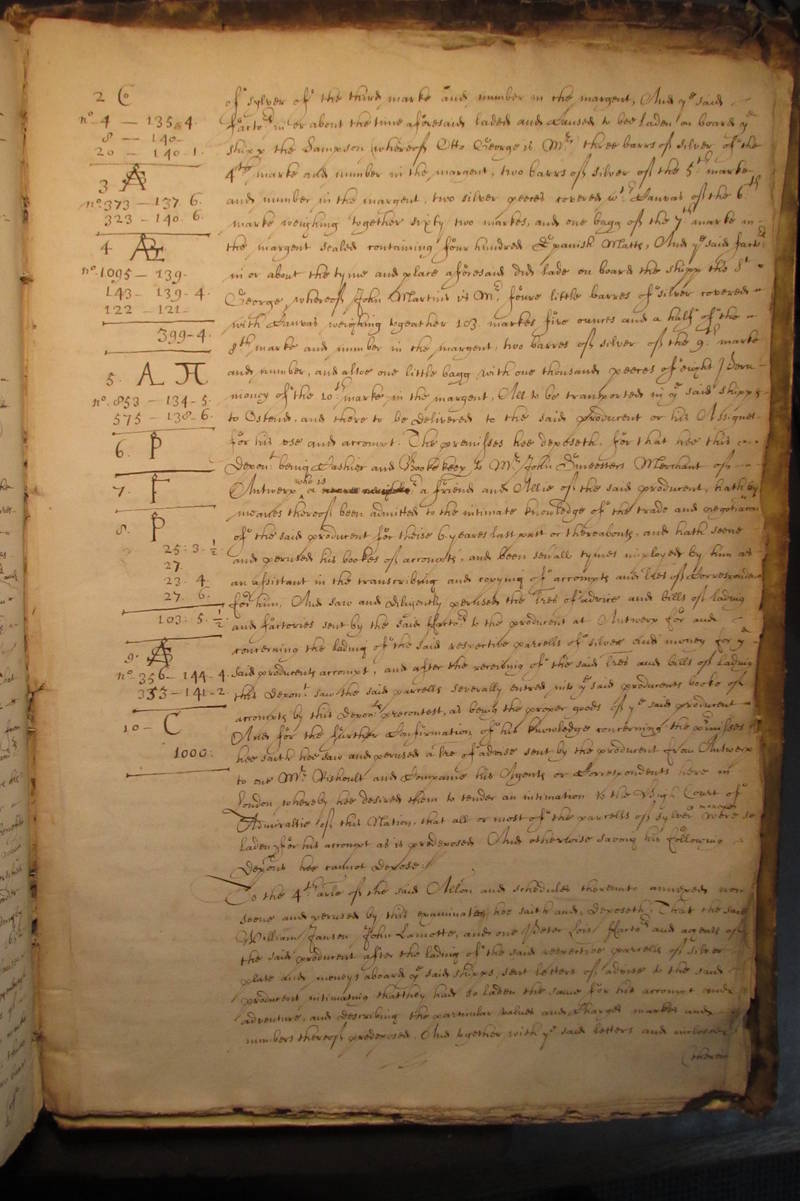 2 C
no. 4 — 135. 4.
8 — 140 —
20 — 140. 1.
3
no. 373 — 137. 6.
323 — 140. 6.
4
no. 1095 — 139.
143 — 139. 4.
122 — 121 —
399 - 4.
5.
no. 853 — 134 - 5.
575 — 138. 6.
6. P
7. F
8. P
25: 3. ½
27.
23. 4.
27. 6.
103: 5. ½
9.
no. 356 — 144 - 4.
353 — 141 - 2.
10 — C
1000:
of sylver of the third marke and number in the margent, And ye said
factors in or about the time aforesaid laded and caused to bee laden on board ye
shipp the Sampson whereof Otto George is Mr three barrs of silver of the
4th marke and number in the margent, two barrs of silver of the 5th marke
and number in the margent, two silver peeces covered wth Canvas of the 6th
marke weighing together sixty two markes, and one bagg of the 7th marke in
the margent sealed containing four hundred Spanish Matts, And ye said factors
in or about the tyme and place aforesaid did lade on board the shipp the St
George whereof John Martins is Mr foure little barres of silver covered
with Canvas weighing togeather 103 markes five ounces and a halfe of the
8th marke and number in the margent, two barres of silver of the 9th marke
and number, and alsoe one little bagg with one thousand peeces of eight
money of the 10th marke in the margent, All to be transported in ye said shipps
to Ostend, and there to be delivered to the said producent or his Assignes
for his use and accompt. The premisses hee deposeth, for that hee this
Depont being Cashier and Bookekeeper to Mr John Merchant of
Antwerp who is a friend and Allie of the said producent, hath by
meanes thereof been admitted to the intimate knowledge of the trade and negotiation
of the said producent for theise 6 yeares last past or thereabouts, and hath seene
and perused his bookes of accompts, and been severall tymes imployed by him as
an assistant in the transcribing and copying of accompts and lres of Correspondence
for him, And saw and diligently perused the lres of advice and bills of lading
and factories sent by the said factors to the producent at Antwerp for and
concerning the lading of the said respective parcells of silver and money for ye
said producents accompt, and after the receiving of the said lres and bills of lading
this Deponent saw the said parcells severally entred into ye said producents booke of
accompts by this Deponts precontest, as being the proper goods of ye said producent
And for the further Confirmation of his knowledge concerning the premisses
hee saith hee saw and perused a lre of advise sent by the producent from Antwerp
to one Mr and Companie his Agents or Correspondents here in
London whereby hee desired them to tender an intimation to the High Court of
Admiraltie of this Nation, that all or most of the parcells of sylver and moneys were so
laden for his accompt as is predeposed And otherwise saving his following
Deponts hee cannot depose.
To the 4th arle of the said Allon and schedules thereunto annexed now
seene and perused by this examinate, hee saith and deposeth, That the said
William Jansen John Lamotte, and one Peter Lois factors and agents of
the said producent after the lading of the said respective parcells of silver
plate and moneys aboard ye said shipps, sent letters of advise to the said
producent intimating that they had so laden the same for his accompt and
adventure, and describing the particular values and charges markes and
numbers thereof predeposed, And together with ye said letters and inclosed
therein